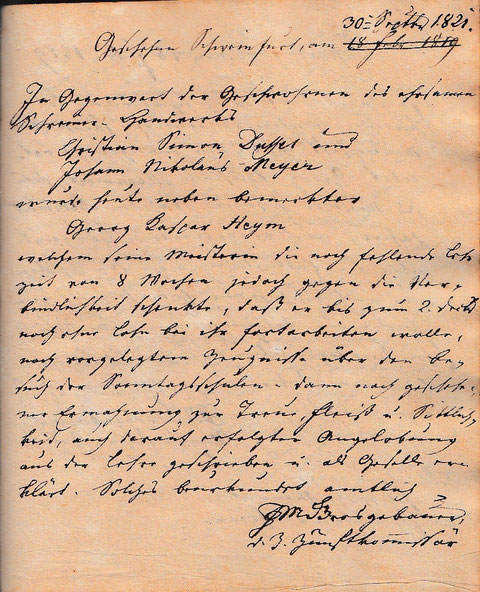 30t Septbr 1821.
Geschehen Schweinfurt, am 18 Febr. 1819
In Gegenwart der Geschwornen des ehrsamen
Schreiner-Handwerks
Christian Simon und
Johann Nikolaus Meyer
wurde heute neben bemerkter
Georg Kaspar Heym
welchem seine Meisterin die noch fehlende Lehr
zeit von 8 Wochen jedoch gegen die Ver-
bindlichkeit schenkte, daß er bis zum 2. 
noch ohne Lohn bei ihr fortarbeiten wolle,
nach vorgelegtem Zeugnisse über den Be-
such der Sonntagsschulen - dann nach geschehe-
ner Ermahnung zur Treue, Fleiß u. Sittlich-
keit, auch darauf erfolgter Angelobung
aus der Lehre geschrieben u. als Geselle er-
klärt. Solches beurkundet amtlich
Brosgebauer,
d. Z. Zunftkommissär